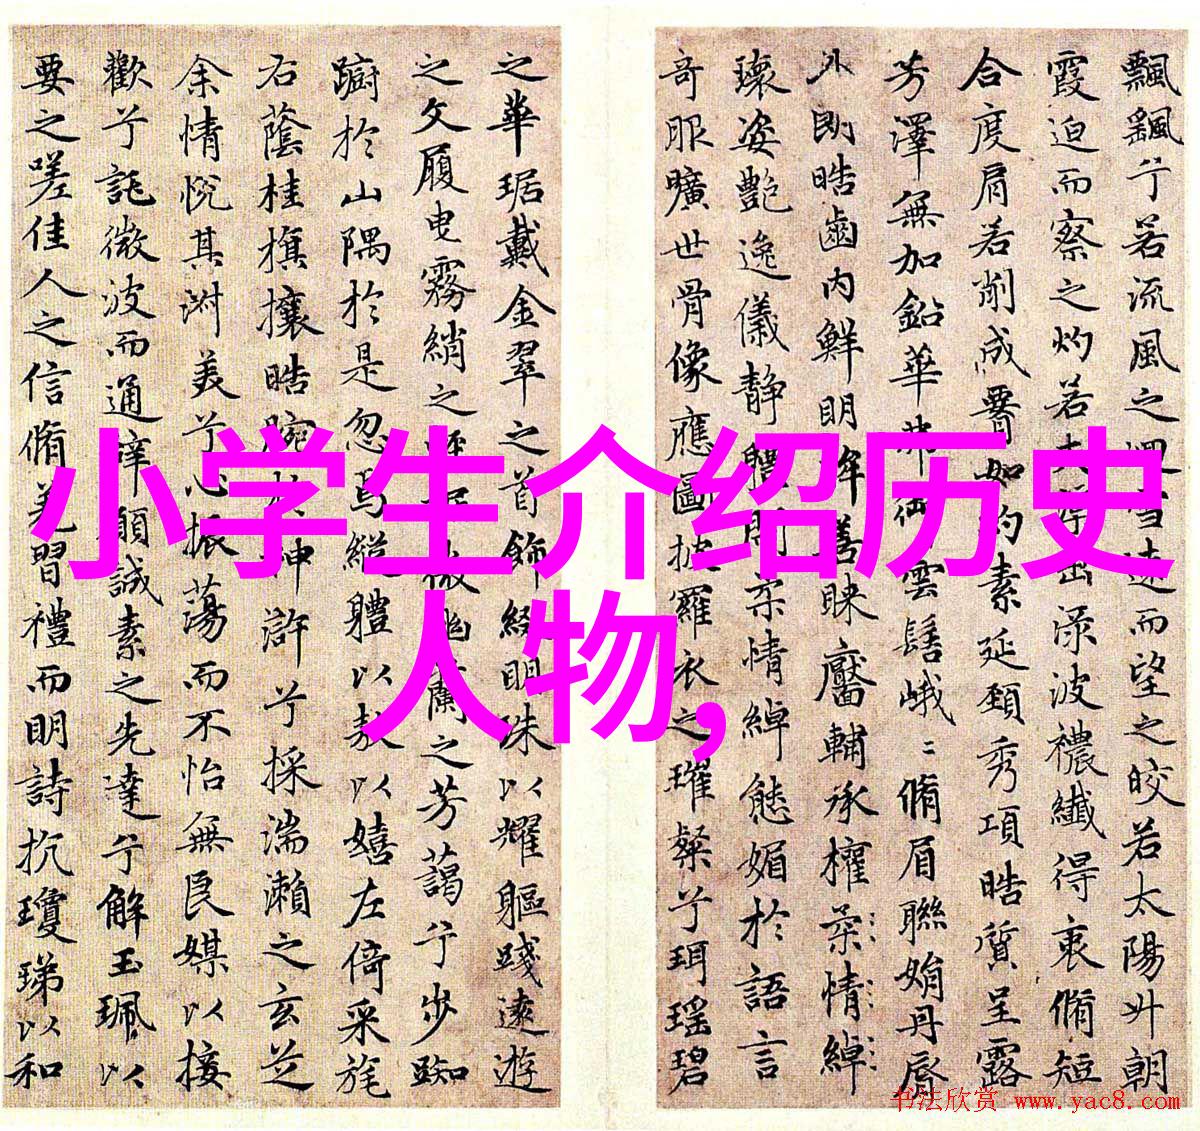 飄飖兮若流風之迴雪遠而望之皎若太陽升朝
霞迫而察之灼若芙蓉出渌波襛纖得衷脩短
合度肩若削成如約素延頸秀項皓質呈露
芳澤無加鉛華弗御雲髻峨〻脩眉聯娟丹脣
外朗皓齒內鮮明眸善睞靨輔承權柔情綽
瓌姿艷逸儀靜體閑柔情綽態媚於語言
奇服曠世骨像應圖披羅衣之璀粲兮珥瑤碧
之華琚戴金翠之首飾綴明珠以耀軀踐遠遊
之文履曳霧綃之輕裾微幽蘭之芳藹兮步踟
躕於山隅於是忽焉縱體以敖以嬉左倚采旄
右蔭桂旗攘皓腕於神滸兮採湍瀨之玄芝
余情悅其淑美兮心振蕩而不怡無良媒以接
歡兮託微波而通辭願誠素之先達兮解玉珮以
要之嗟佳人之信脩羌習禮而明詩抗瓊珶以和
小学生介绍历史
人物,
书法欣赏 www.yac8.com